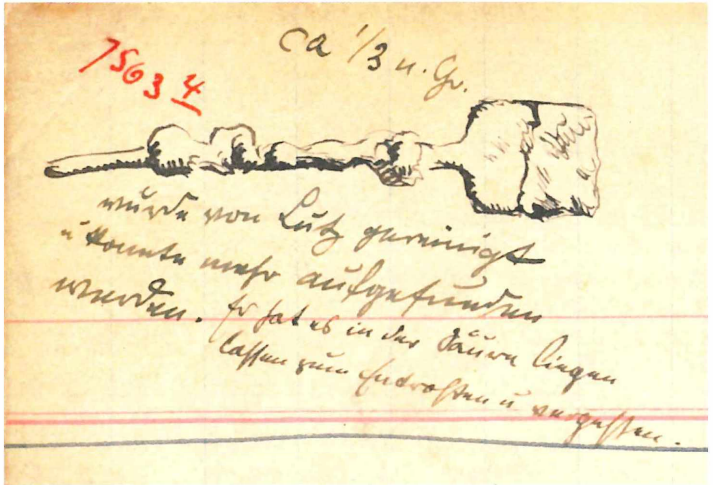 7563 4
ca 1/3 n. Gr.
wurde von Lutz gereinigt
u konnte mehr aufgefunden
werden. Er hat es in der Säure liegen
lassen zum Entrosten u. vergessen.